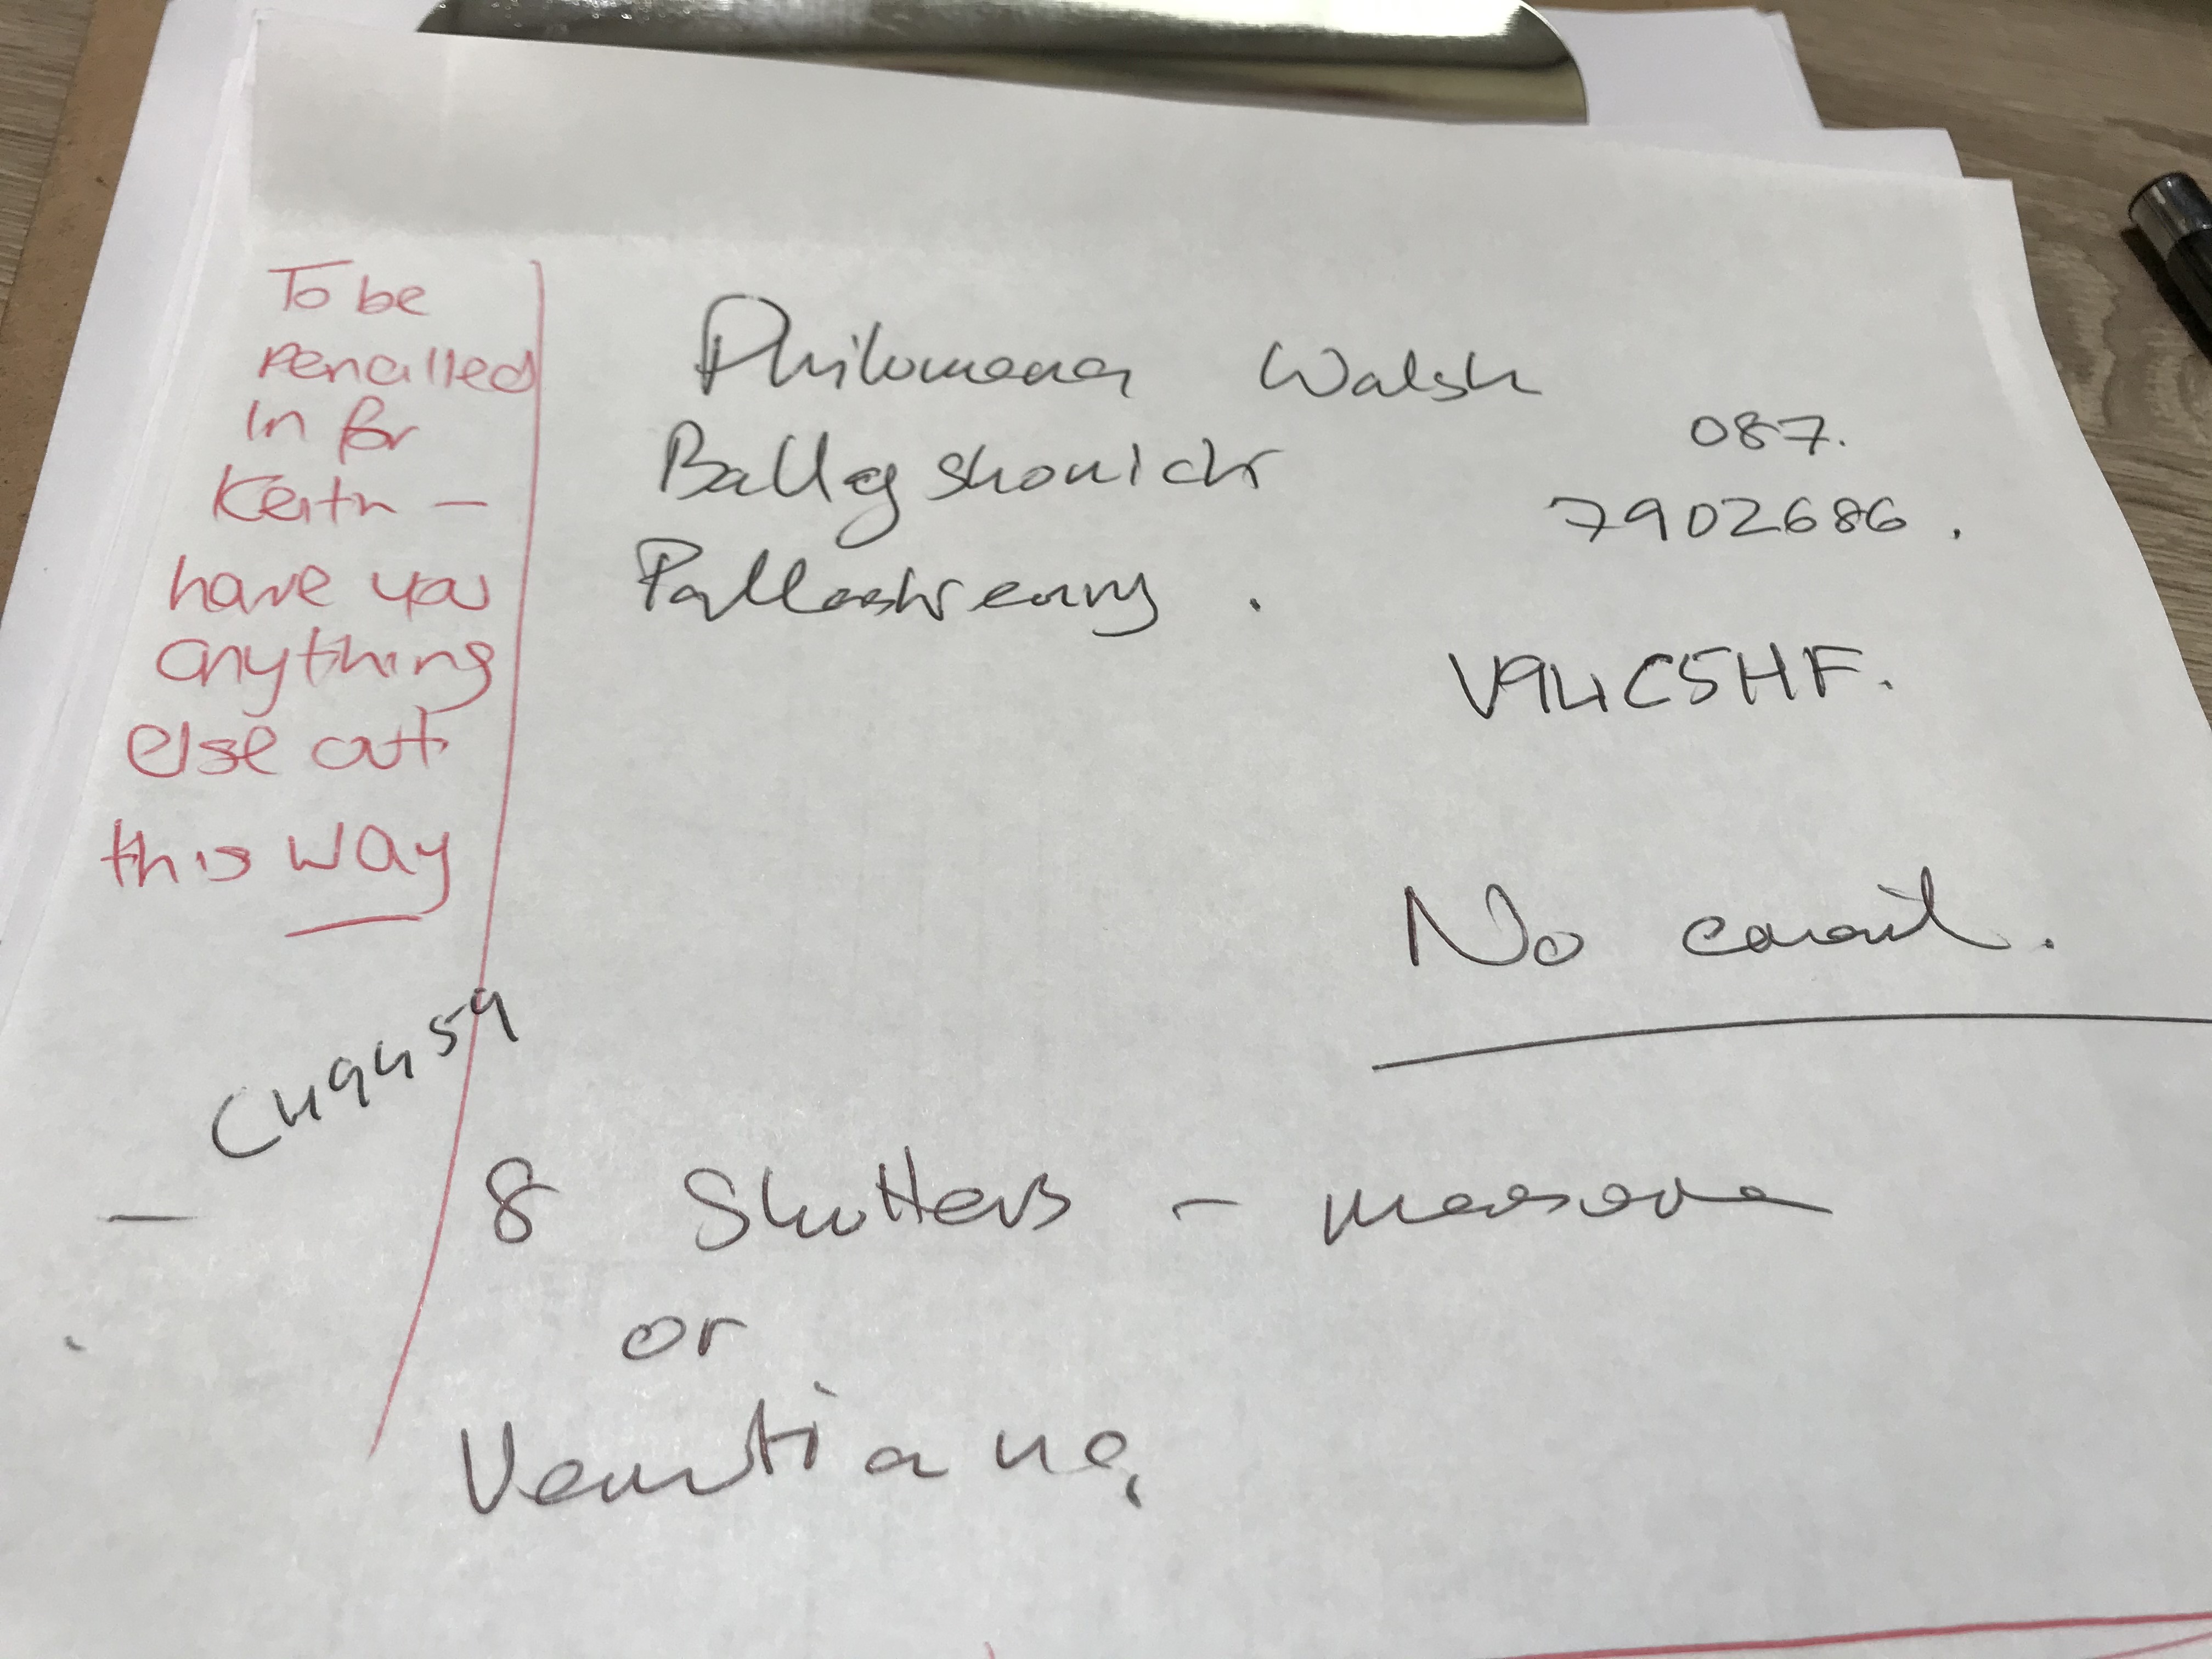 To be
pencilled
in for
Keith -
have you
anything
else out
this way
Philomena Walsh
Ballyshonick
Pallaskenry .
087.
7902686 .
V94C5HF.
No email.
CH9459
8 Shutters - measure
or
Venetians,